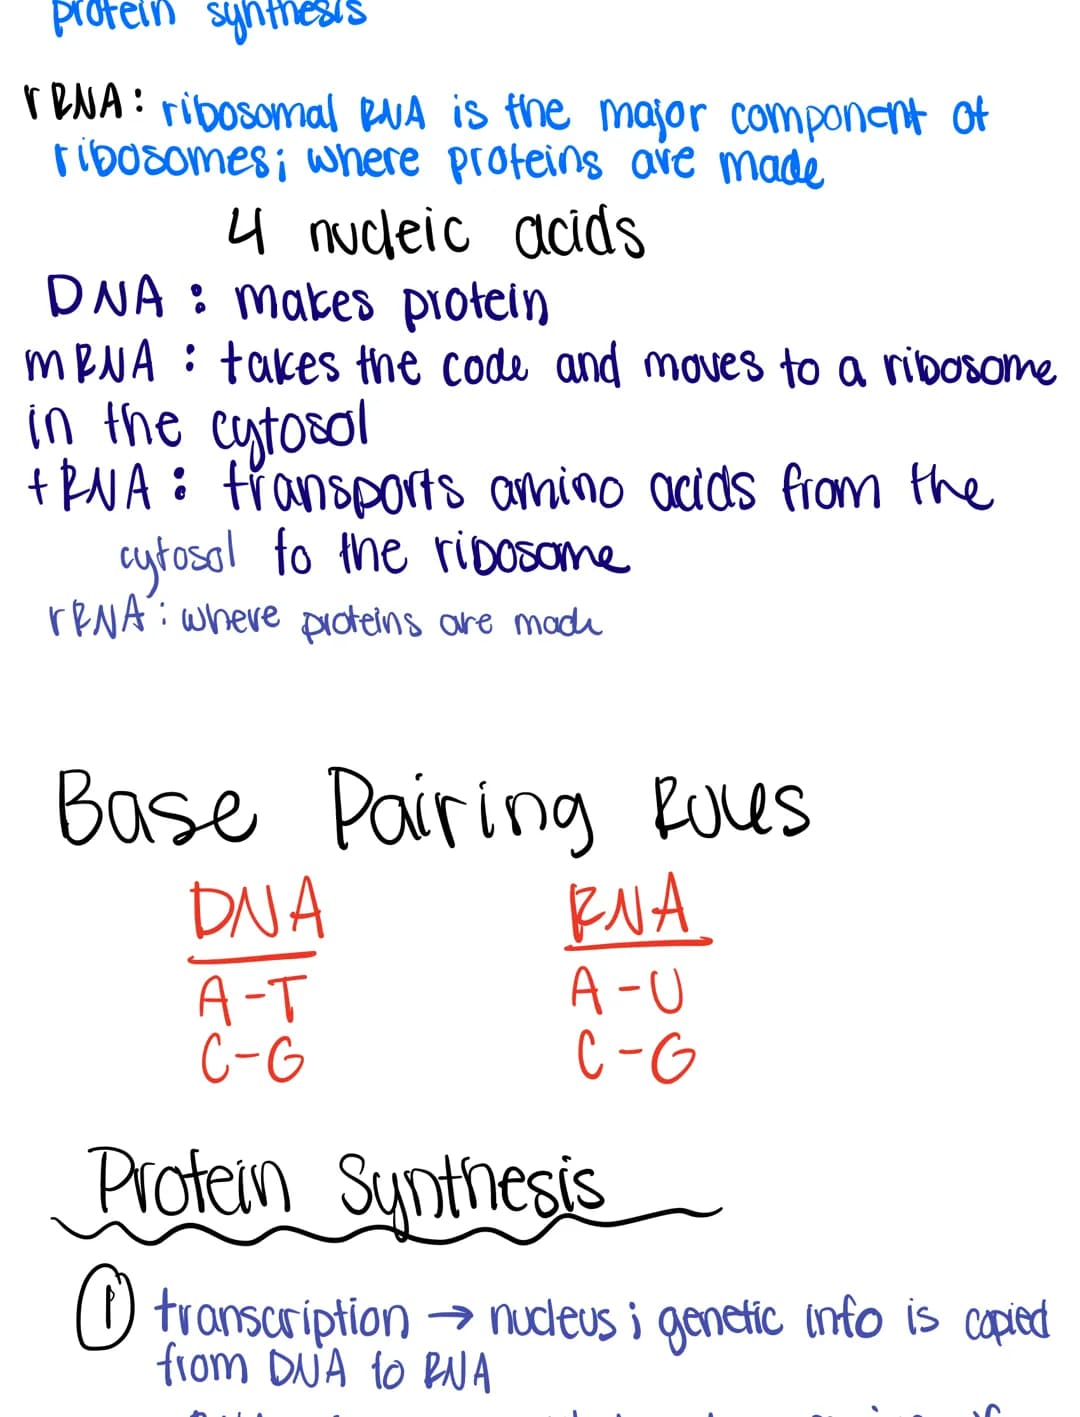 protein synthesis
rRNA: ribosomal RNA is the major component of
ribosomes; where proteins are made
4 nucleic acids
DNA : makes protein
mRNA : takes the code and moves to a ribosome
in the cytosol
tRNA : transports amino acids from the
cytosol to the ribosome
rRNA : where proteins are made
Base Pairing Rules
DNA RNA
A-T A-U
C-G C-G
Protein Synthesis
① transcription → nucleus; genetic info is copied
from DNA to RNA